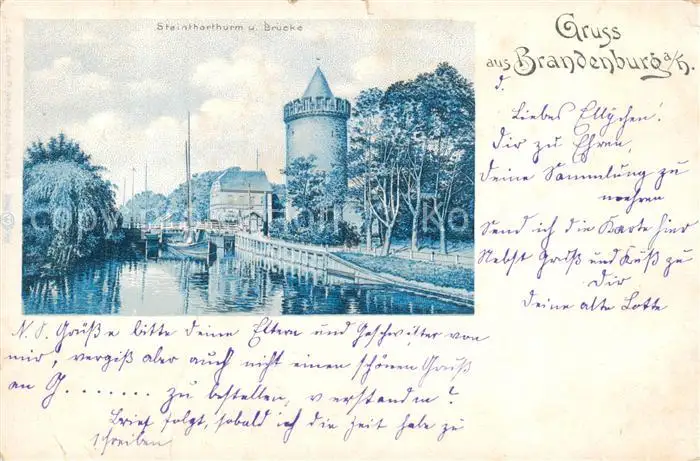 Steinthorthurm u. Brücke
Gruss
aus Brandenburg a/h.
Liebes Ellychen!
Dir zu Ehren,
deine Sammlung zu
mehren
Send ich die Karte hier
Nebst Gruß und Kuß zu
Dir
deine alte Lotte
N. S. Grüße bitte deine Eltern und Geschwister von
mir, vergiß aber auch nicht einen schönen Gruß
an G....... zu bestellen, verstanden?
Brief folgt, sobald ich die Zeit habe zu
schreiben